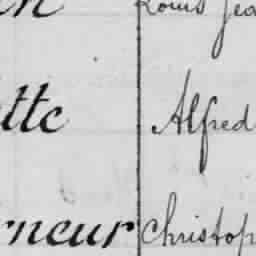 Louis Jea
tte Alfred
rneur Christop